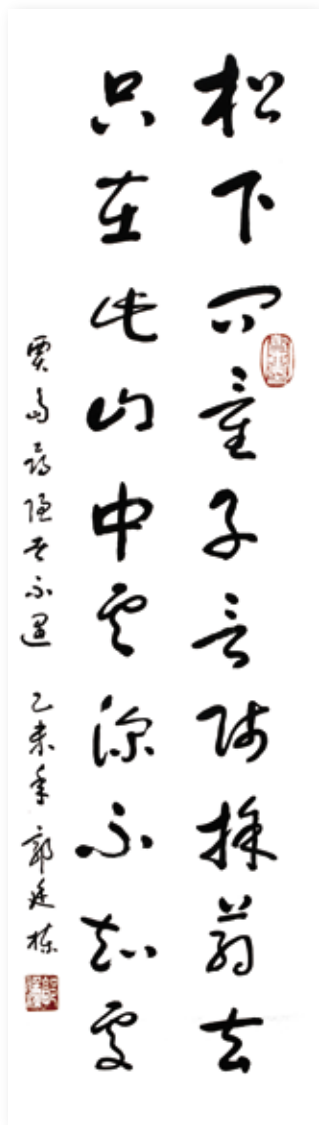 松下问童子言师採药去
只在此山中云深不知处
贾岛寻隐者不遇 乙未年 郭廷栋